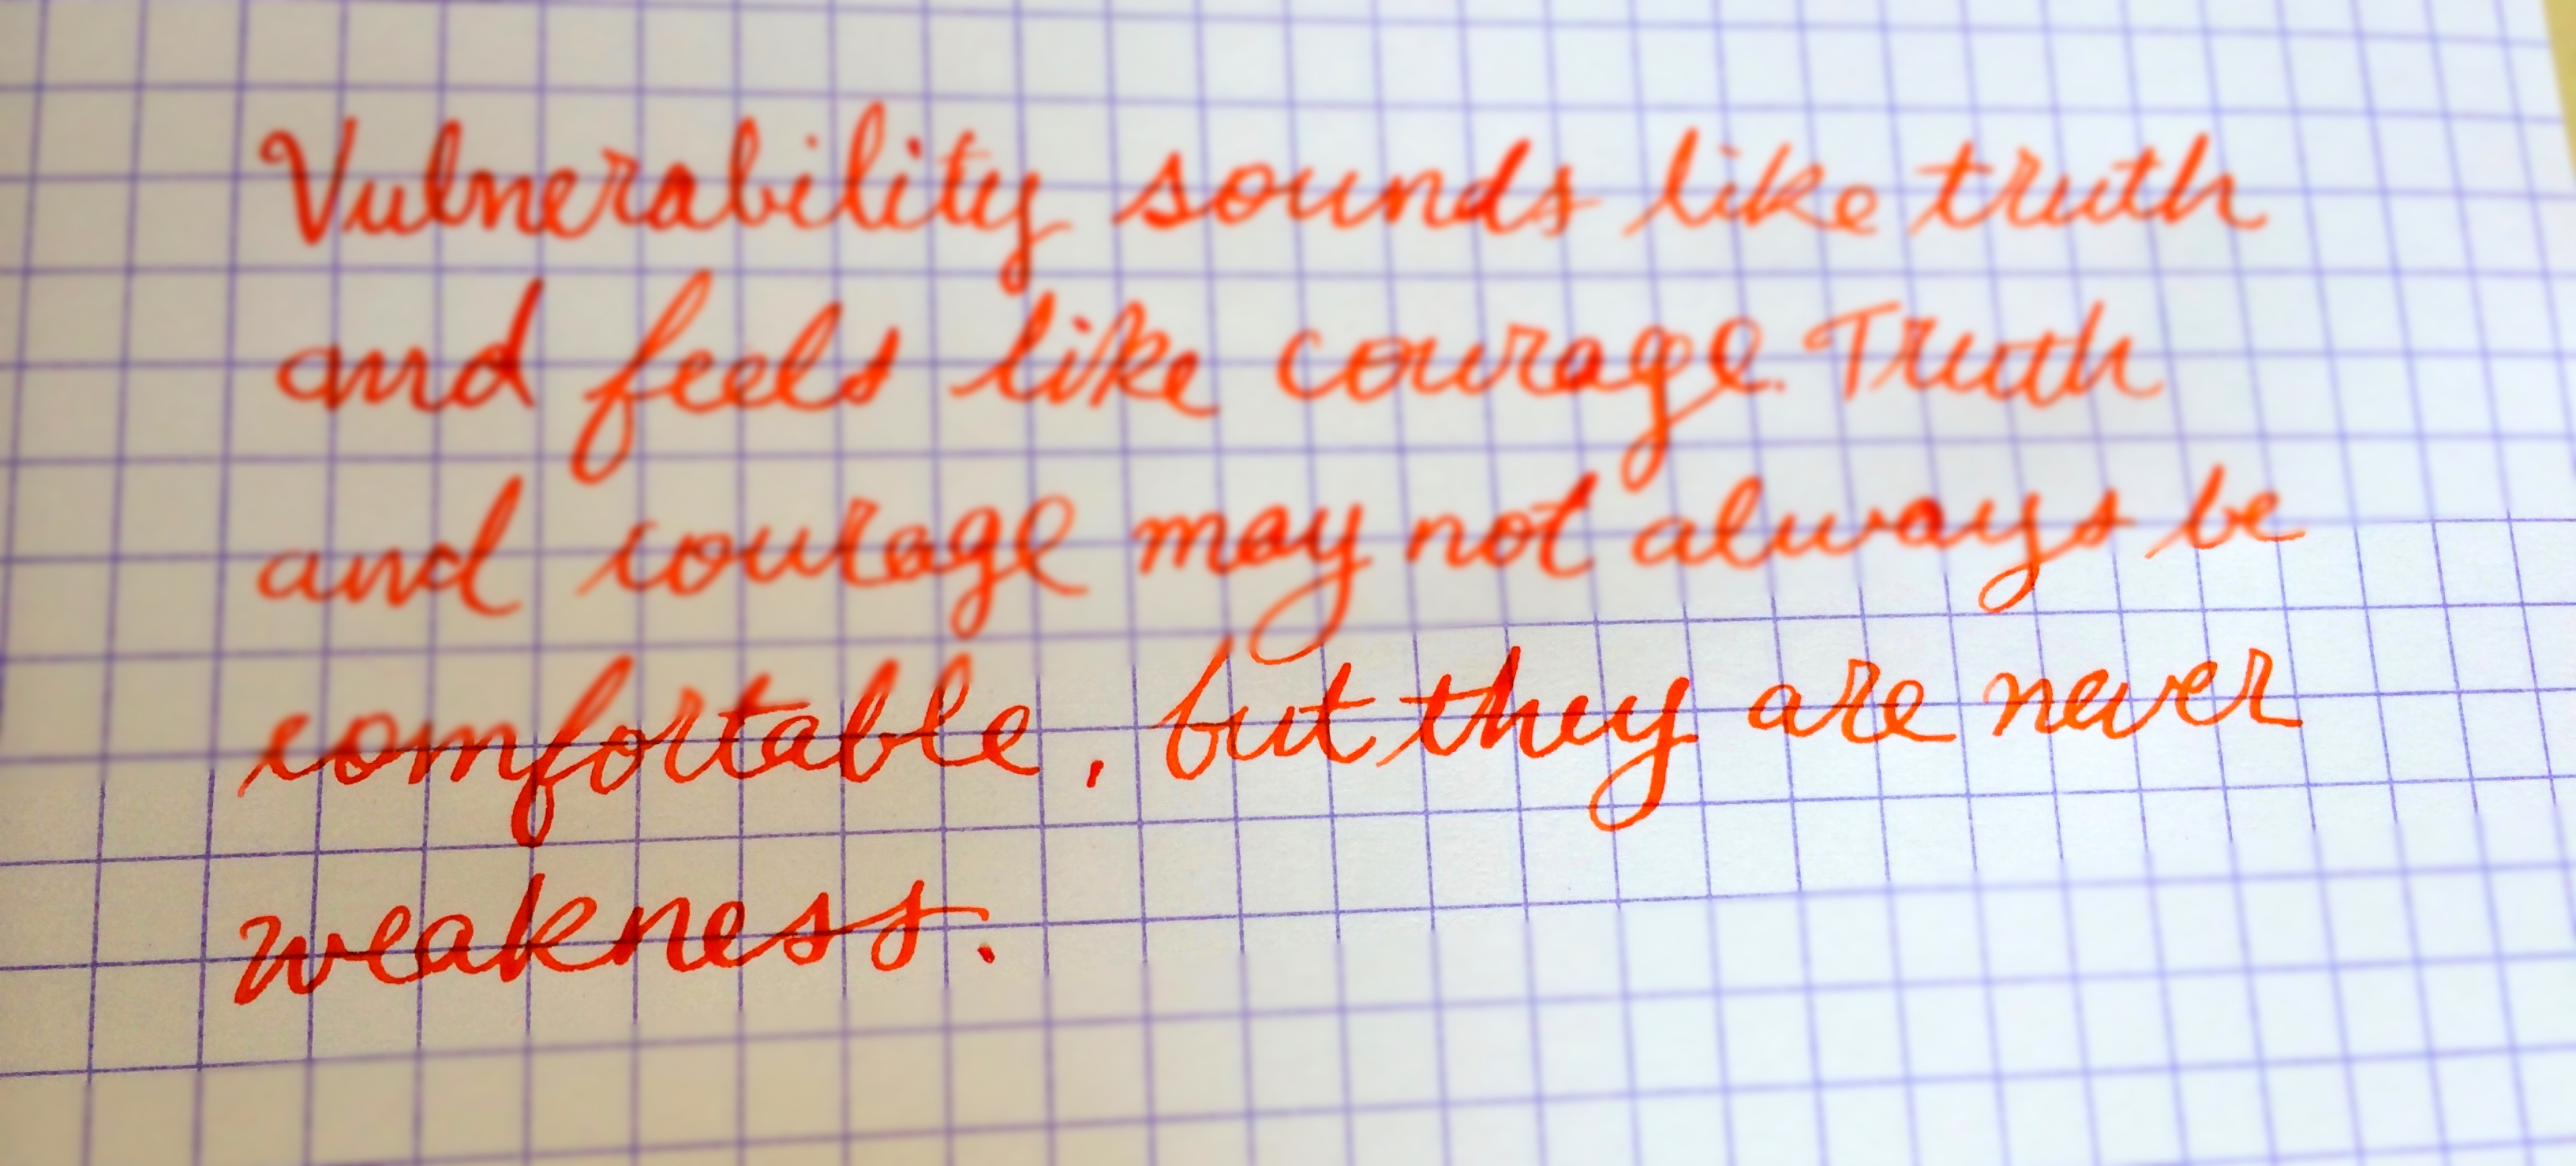 Vulnerability sounds like truth
and feels like courage. Truth
and courage may not always be
comfortable, but they are never
weakness.